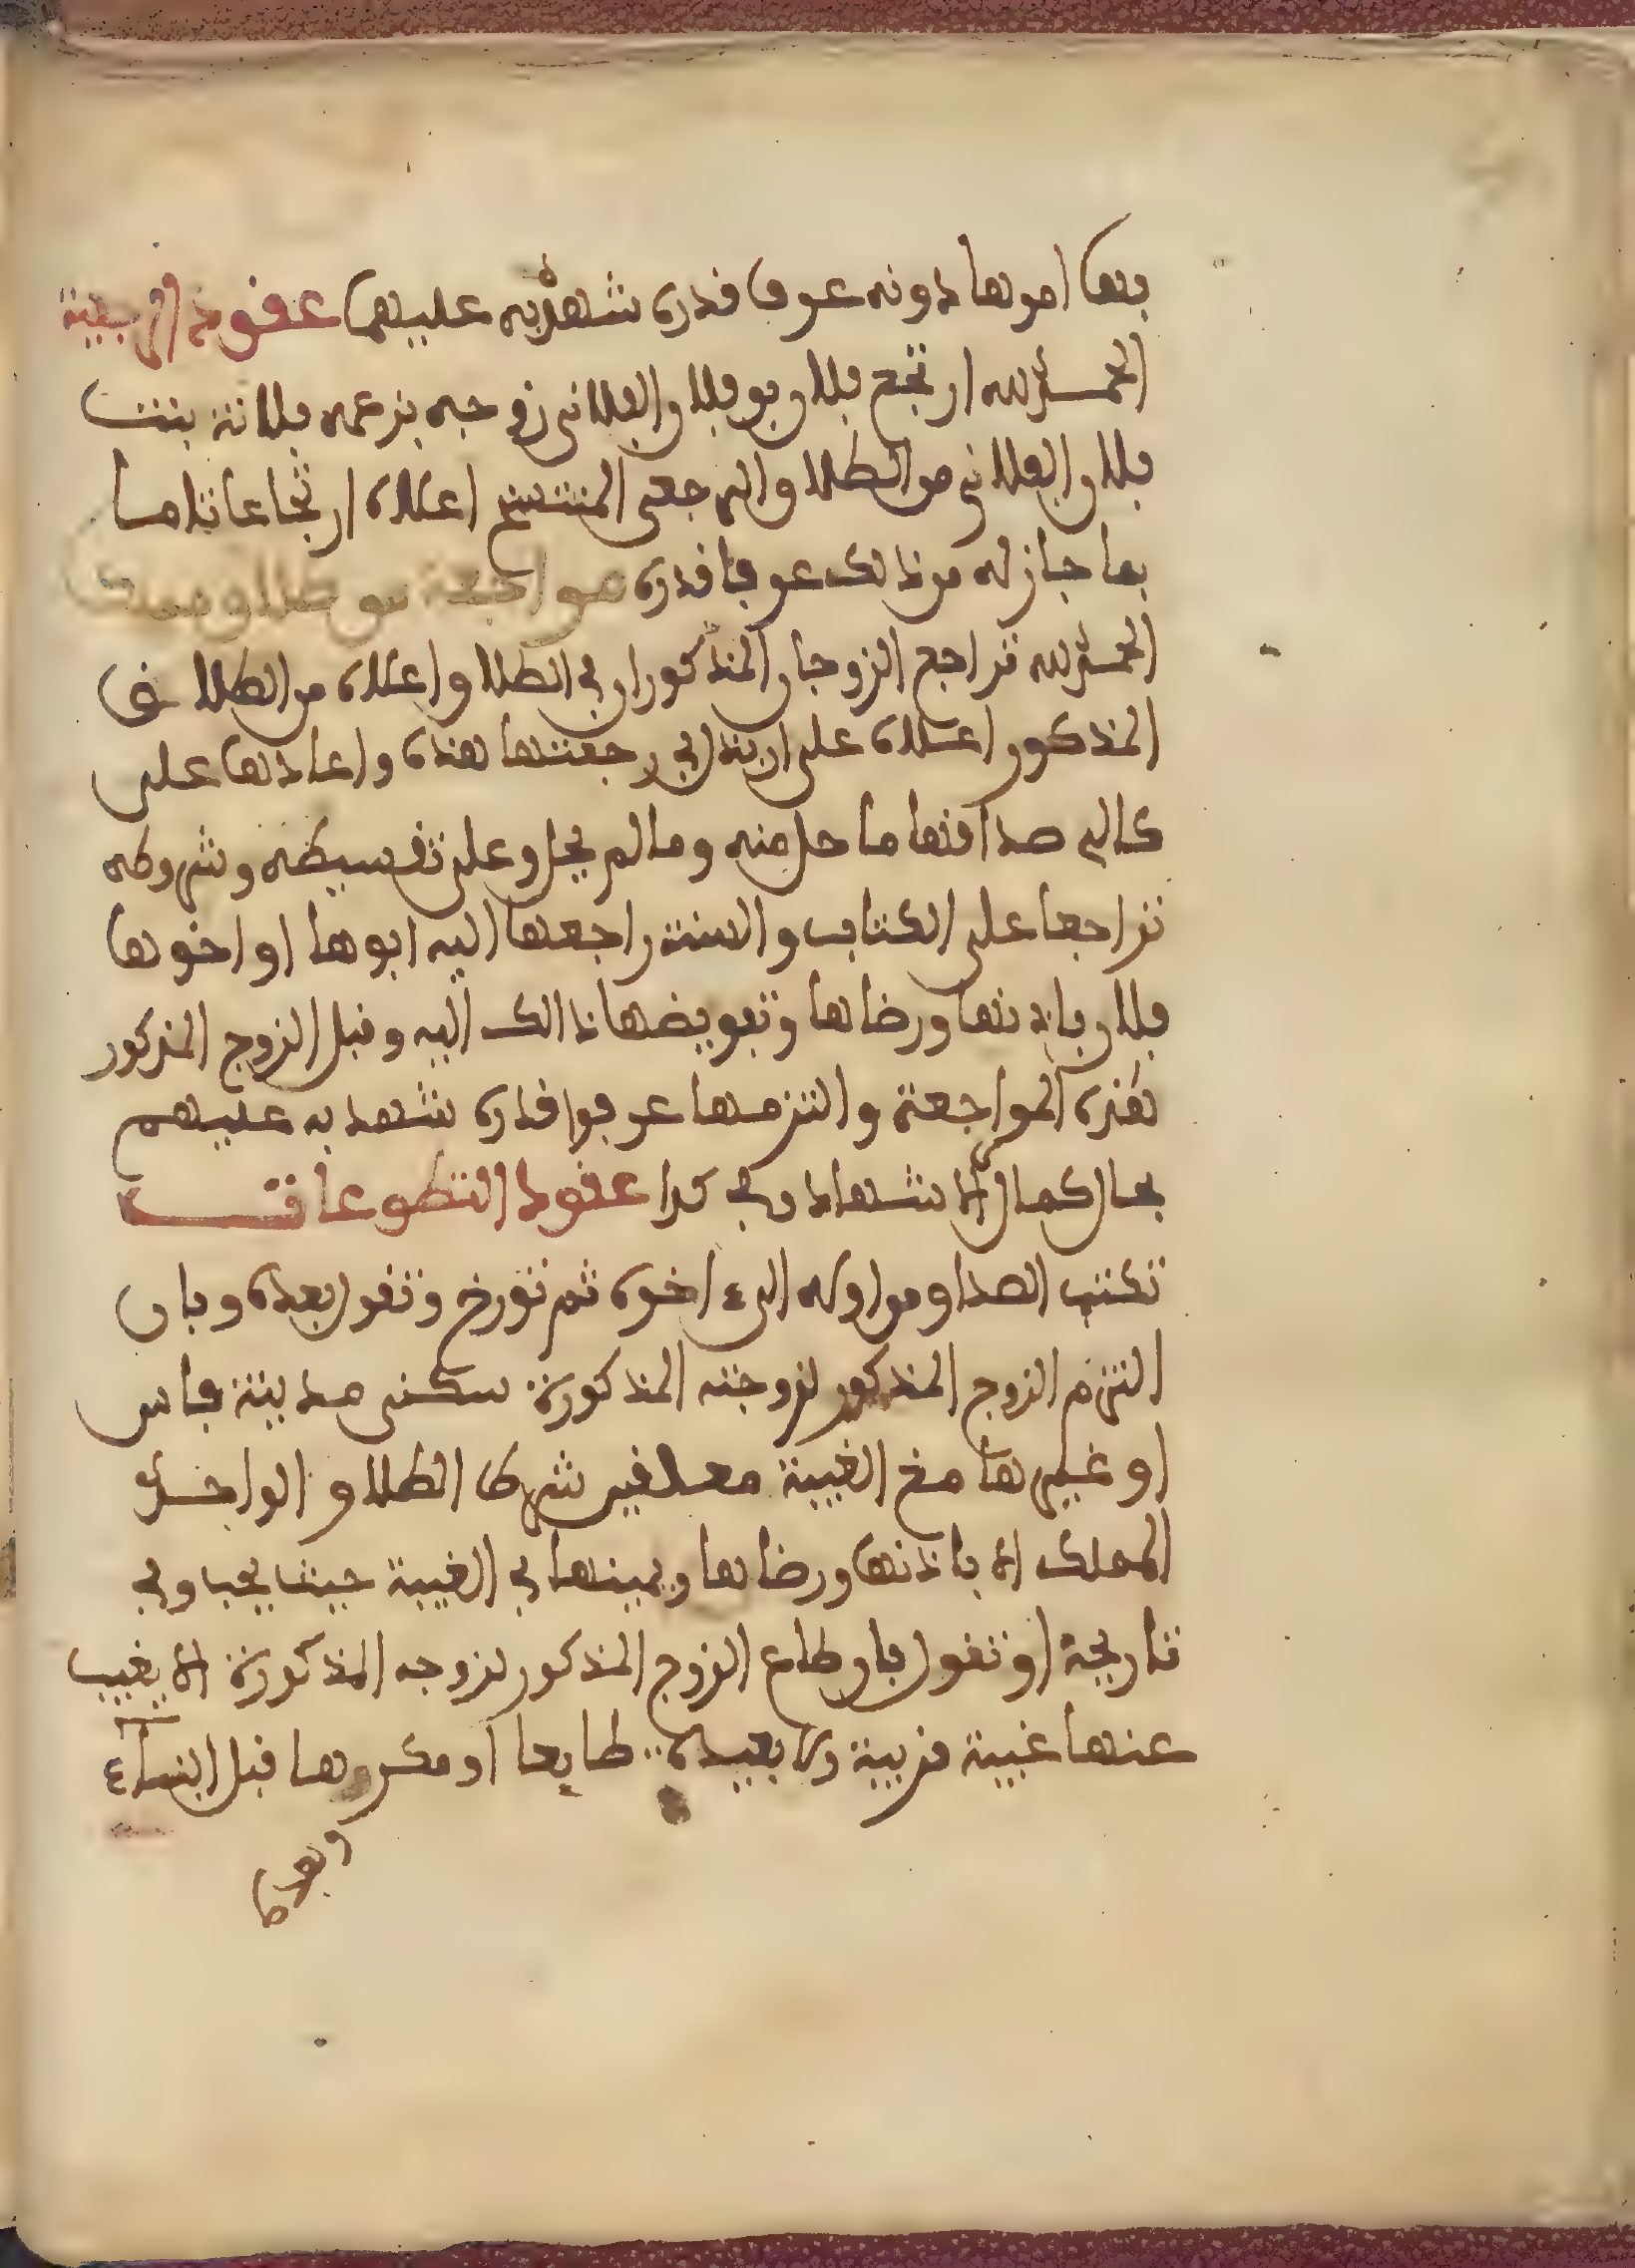 بها امرها دونه عرفا قدره شهد به عليهما عقود الرجعية
الحمد لله ارتجع فلان بن فلان الفلاني زوجه بنت عمه فلانة بنت
فلان الفلاني من الطلاق الرجعي المنتسخ اعلاه ارتجاعا تاما
بما جاز له من ذالك عرفا قدره مراجعة من طلاق
الحمد لله تراجع الزوجان المذكوران في الطلاق اعلاه من الطلاق
المذكور اعلاه على ان بنا في رجعتها هذه واعادها على
كالي صداقها ما حل منه وما لم يحل وعلى تقسيطه وشروطه
تراجعا على الكتاب والسنة راجعها اليه ابوها او اخوها
فلان باذنها ورضاها وتفويضها ذالك اليه وقبل الزوج المذكور
هذه المراجعة والتزمها عرفوا قدره شهد به عليهم
بحال كمال الاشهاد وفي كذا عقود التطوعات
تكتب الصداق من اوله الى ءاخره ثم تؤرخ وتقول بعده وبان
التزم الزوج المذكور لزوجته المذكورة سكنى مدينة فاس
او غيرها مع الغيبة معلقين شرط الطلاق الواحد
المملك الا باذنها ورضاها ويمينها في الغيبة حيث يجب وفي
تاريخه او تقول بان طاع الزوج المذكور لزوجه المذكورة الا يغيب
عنها غيبة قريبة ولا بعيدة طايعا او مكرها قبل البناء
وبعده